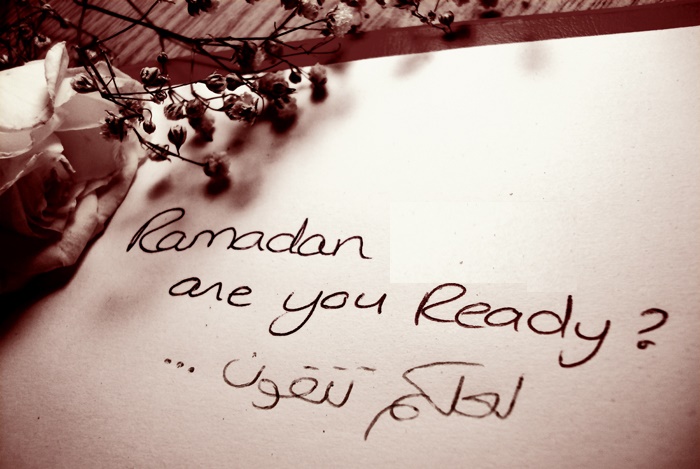 Ramadan
are you Ready?
لعلكم تتقون ...